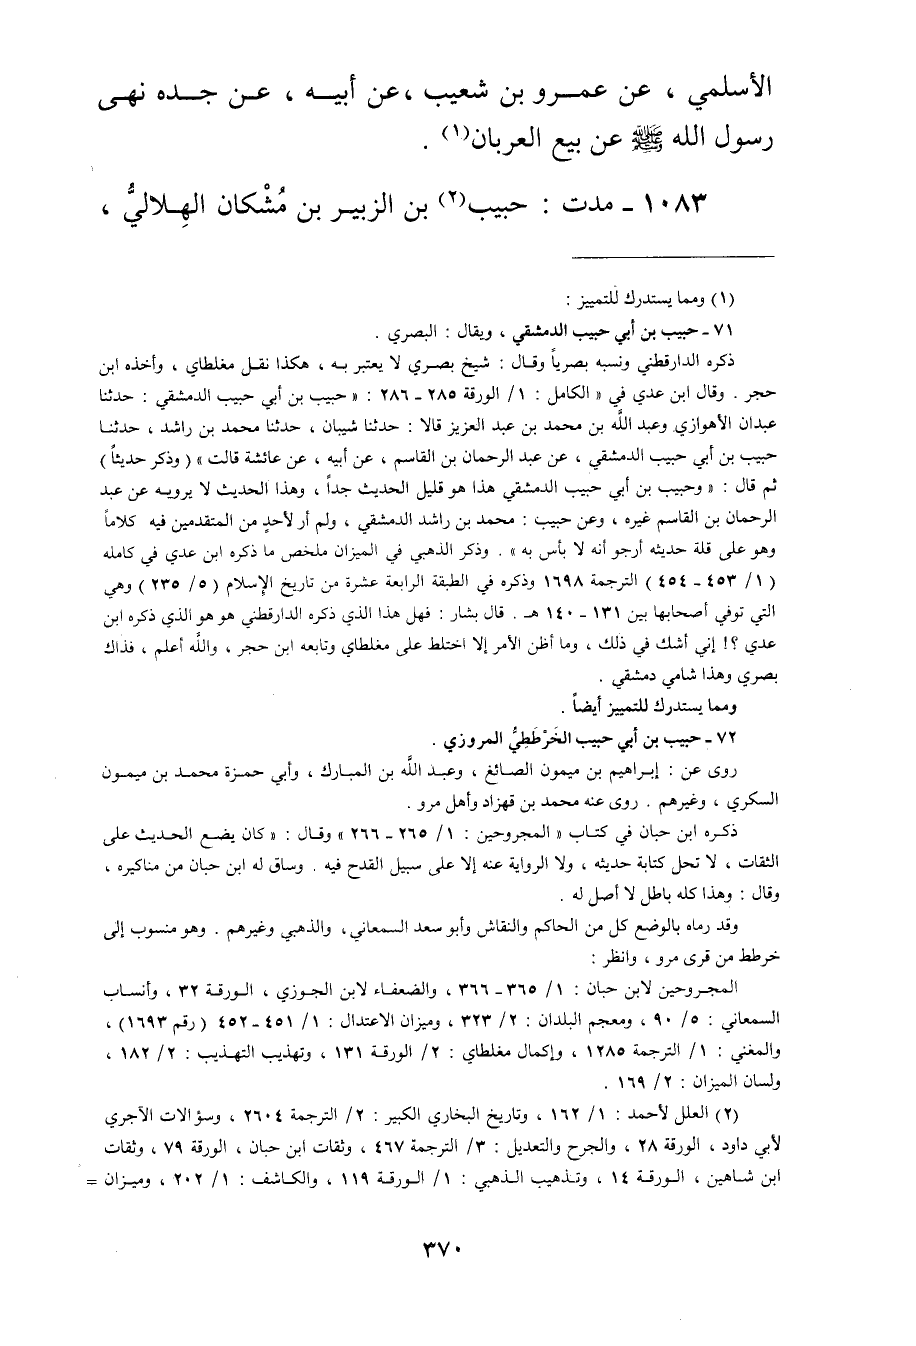 الأسلمي ، عن عمرو بن شعيب ،عن أبيه ، عن جده نهى
رسول الله ﷺ عن بيع العربان(١) .
١٠٨٣ ـ مدت : حبيب(٢) بن الزبير بن مُشْكان الهِلاليُّ ،
(١) ومما يستدرك للتمييز :
٧١ ـ حبيب بن أبي حبيب الدمشقي ، ويقال : البصري .
ذكره الدارقطني ونسبه بصرياً وقال : شيخ بصري لا يعتبر به ، هكذا نقل مغلطاي ، وأخذه ابن
حجر . وقال ابن عدي في « الكامل : ١/ الورقة ٢٨٥ ـ ٢٨٦ : « حبيب بن أبي حبيب الدمشقي : حدثنا
عبدان الأهوازي وعبد اللَّه بن محمد بن عبد العزيز قالا : حدثنا شيبان ، حدثنا محمد بن راشد ، حدثنا
حبيب بن أبي حبيب الدمشقي ، عن عبد الرحمان بن القاسم ، عن أبيه ، عن عائشة قالت » ( وذكر حديثاً )
ثم قال : « وحبيب بن أبي حبيب الدمشقي هذا هو قليل الحديث جداً ، وهذا الحديث لا يرويه عن عبد
الرحمان بن القاسم غيره ، وعن حبيب : محمد بن راشد الدمشقي ، ولم أر لأحدٍ من المتقدمين فيه كلاماً
وهو على قلة حديثه أرجو أنه لا بأس به » . وذكر الذهبي في الميزان ملخص ما ذكره ابن عدي في كامله
( ١/ ٤٥٣ ـ ٤٥٤ ) الترجمة ١٦٩٨ وذكره في الطبقة الرابعة عشرة من تاريخ الإسلام ( ٥/ ٢٣٥ ) وهي
التي توفي أصحابها بين ١٣١ ـ ١٤٠ هـ . قال بشار : فهل هذا الذي ذكره الدارقطني هو هو الذي ذكره ابن
عدي ؟! إني أشك في ذلك ، وما أظن الأمر إلا اختلط على مغلطاي وتابعه ابن حجر ، واللَّه أعلم ، فذاك
بصري وهذا شامي دمشقي .
ومما يستدرك للتمييز أيضاً .
٧٢ ـ حبيب بن أبي حبيب الخَرْطَطِيُّ المروزي .
روى عن : إبراهيم بن ميمون الصائغ ، وعبد اللَّه بن المبارك ، وأبي حمزة محمد بن ميمون
السكري ، وغيرهم . روى عنه محمد بن قهزاد وأهل مرو .
ذكره ابن حبان في كتاب « المجروحين : ١/ ٢٦٥ ـ ٢٦٦ » وقال : « كان يضع الحديث على
الثقات ، لا تحل كتابة حديثه ، ولا الرواية عنه إلا على سبيل القدح فيه . وساق له ابن حبان من مناكيره ،
وقال : وهذا كله باطل لا أصل له .
وقد رماه بالوضع كل من الحاكم والنقاش وأبو سعد السمعاني، والذهبي وغيرهم . وهو منسوب إلى
خرطط من قرى مرو ، وانظر :
المجروحين لابن حبان : ١/ ٣٦٥ ـ ٣٦٦ ، والضعفاء لابن الجوزي ، الورقة ٣٢ ، وأنساب
السمعاني : ٥/ ٩٠ ، ومعجم البلدان : ٢/ ٣٢٣ ، وميزان الاعتدال : ١/ ٤٥١ ـ ٤٥٢ ( رقم ١٦٩٣) ،
والمغني : ١/ الترجمة ١٢٨٥ ، وإكمال مغلطاي : ٢/ الورقة ١٣١ ، وتهذيب التهذيب : ٢/ ١٨٢ ،
ولسان الميزان : ٢/ ١٦٩ .
(٢) العلل لأحمد : ١/ ١٦٢ ، وتاريخ البخاري الكبير : ٢/ الترجمة ٢٦٠٤ ، وسؤالات الآجري
لأبي داود ، الورقة ٢٨ ، والجرح والتعديل : ٣/ الترجمة ٤٦٧ ، وثقات ابن حبان ، الورقة ٧٩ ، وثقات
ابن شاهين ، الورقة ١٤ ، وتذهيب الذهبي : ١/ الورقة ١١٩ ، والكاشف : ١/ ٢٠٢ ، وميزان =
٣٧٠